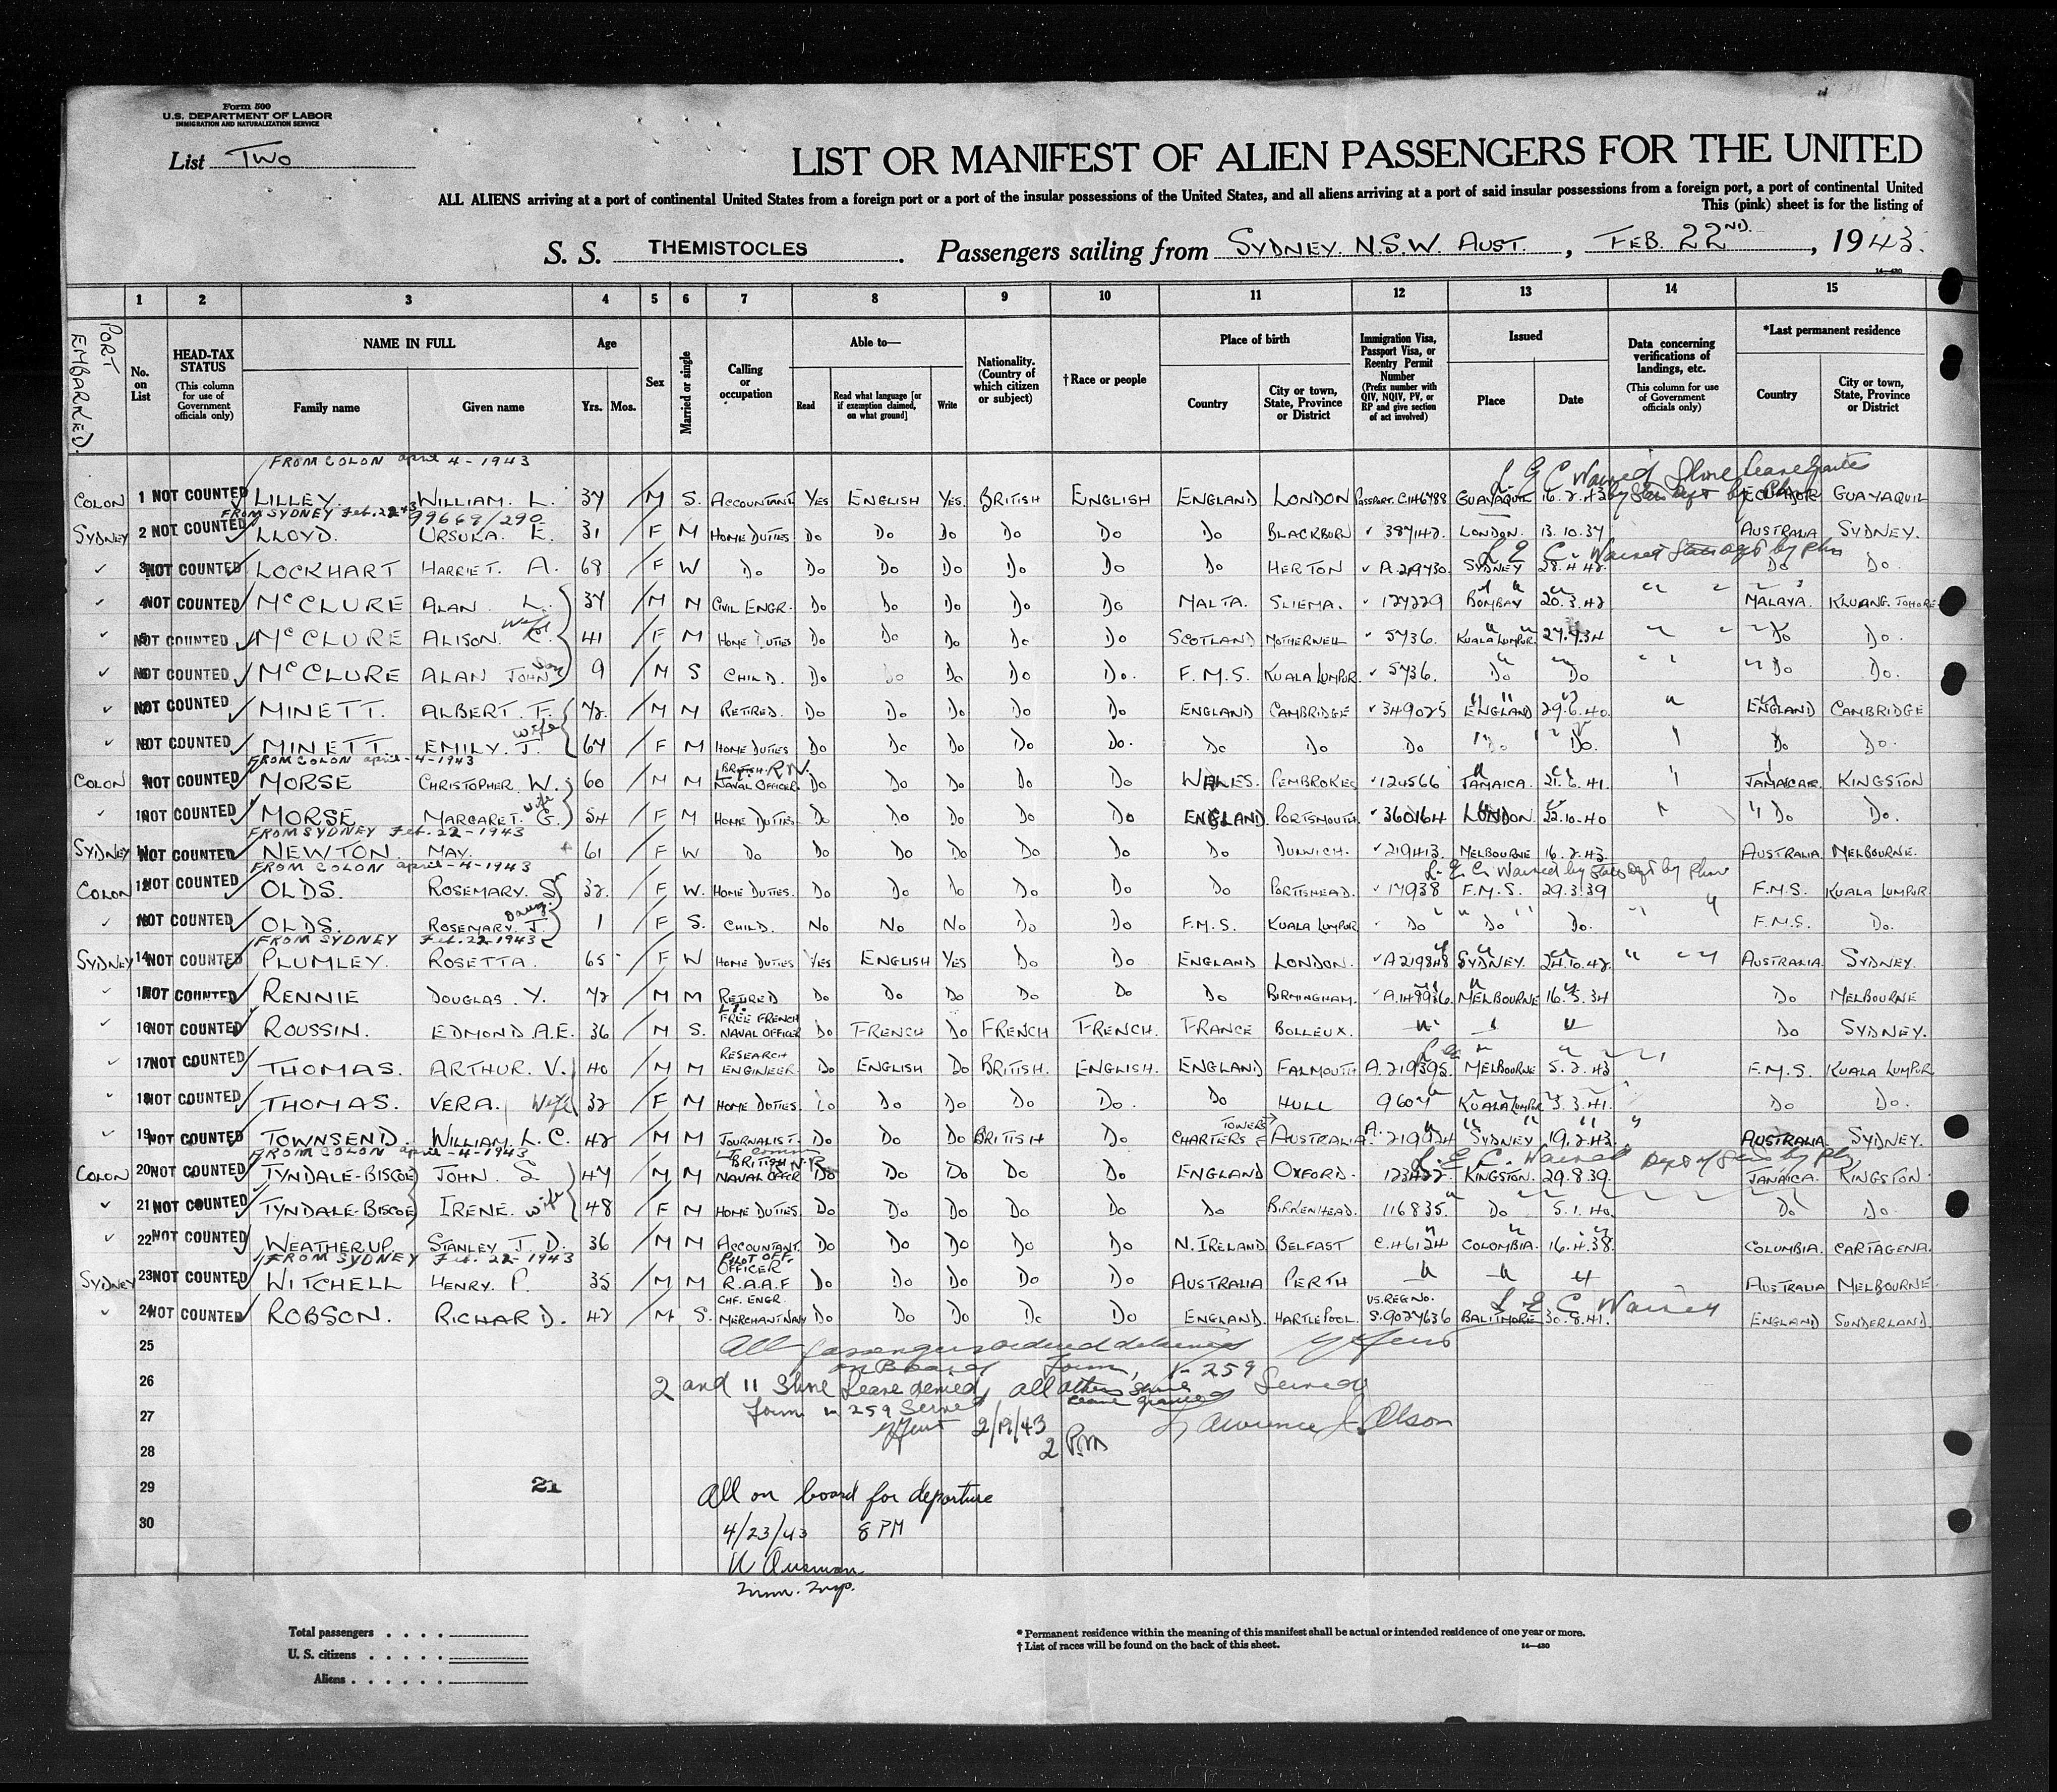 Form 500
U.S. DEPARTMENT OF LABOR
IMMIGRATION AND NATURALIZATION SERVICE
List Two
LIST OR MANIFEST OF ALIEN PASSENGERS FOR THE UNITED
ALL ALIENS arriving at a port of continental United States from a foreign port or a port of the insular possessions of the United States, and all aliens arriving at a port of said insular possessions from a foreign port, a port of continental United
This (pink) sheet is for the listing of
S. S. THEMISTOCLES. Passengers sailing from SYDNEY. N.S.W. AUST., FEB. 22ND., 1943.
14—430
1 2 3 4 5 6 7 8 9 10 11 12 13 14 15
PORT EMBARKED.
No. on List
HEAD-TAX STATUS (This column for use of Government officials only)
NAME IN FULL Family name Given name
Age Yrs. Mos.
Sex
Married or single
Calling or occupation
Able to— Read Read what language [or if exemption claimed, on what ground] Write
Nationality. (Country of which citizen or subject)
†Race or people
Place of birth Country City or town, State, Province or District
Immigration Visa, Passport Visa, or Reentry Permit Number (Prefix number with QIV, NQIV, PV, or RP and give section of act involved)
Issued Place Date
Data concerning verifications of landings, etc. (This column for use of Government officials only)
*Last permanent residence Country City or town, State, Province or District
FROM COLON april 4-1943
COLON 1 NOT COUNTED LILLEY. WILLIAM. L. 37 M S. ACCOUNTANT YES ENGLISH YES. BRITISH ENGLISH ENGLAND LONDON PASSPORT. C1146788 GUAYAQUIL 16.2.43 ECUADOR GUAYAQUIL
FROM SYDNEY Feb. 22-43 99669/290
SYDNEY 2 NOT COUNTED LLOYD. URSULA. E. 31 F M HOME DUTIES DO DO DO DO DO DO BLACKBURN 387142. LONDON. 13.10.37 AUSTRALIA SYDNEY.
3 NOT COUNTED LOCKHART HARRIET. A. 68 F W DO DO DO DO DO DO DO HERTON A.219730. SYDNEY 28.4.42. DO DO.
4 NOT COUNTED McCLURE ALAN. L. 37 M M CIVIL ENGR. DO DO DO DO DO MALTA. SLIEMA. 127229 BOMBAY 20.3.42 MALAYA. KLUANG. JOHORE
5 NOT COUNTED McCLURE ALISON. wife 41 F M HOME DUTIES DO DO DO DO DO SCOTLAND MOTHERWELL 5736. KUALA LUMPUR. 27.4.34 DO DO.
6 NOT COUNTED McCLURE ALAN JOHN son 9 M S CHILD. DO DO DO DO DO. F.M.S. KUALA LUMPUR. 5736. DO DO DO DO.
7 NOT COUNTED MINETT. ALBERT. F. 72. M M RETIRED. DO DO DO DO DO ENGLAND CAMBRIDGE 349025 ENGLAND 29.6.40. ENGLAND CAMBRIDGE
8 NOT COUNTED MINETT. EMILY. J. wife 67 F M HOME DUTIES DO DO DO DO DO. DO DO DO DO DO. DO DO.
FROM COLON april-4-1943
COLON 9 NOT COUNTED MORSE CHRISTOPHER. W. 60 M M BRITISH R.N. NAVAL OFFICER DO DO DO DO DO WALES. PEMBROKE 120566 JAMAICA. 21.6.41. JAMAICA. KINGSTON
10 NOT COUNTED MORSE MARGARET. G. wife 54 F M HOME DUTIES DO DO DO DO DO ENGLAND. PORTSMOUTH. 360164 LONDON. 22.10.40 DO DO.
FROM SYDNEY Feb. 22-1943
SYDNEY 11 NOT COUNTED NEWTON. MAY. 61 F W DO DO DO DO DO DO DO DULWICH. 219413. MELBOURNE 16.2.43. AUSTRALIA. MELBOURNE.
FROM COLON april-4-1943
COLON 12 NOT COUNTED OLDS. ROSEMARY. S. 32. F W. HOME DUTIES. DO DO DO DO DO DO PORTSHEAD. 17938 F.M.S. 29.3.39 F.M.S. KUALA LUMPUR.
13 NOT COUNTED OLDS. ROSEMARY. J. Daug. 1 F S. CHILD. NO NO NO. DO DO F.M.S. KUALA LUMPUR DO DO DO. F.M.S. DO.
FROM SYDNEY Feb. 22-1943
SYDNEY 14 NOT COUNTED PLUMLEY. ROSETTA. 65 F W HOME DUTIES YES ENGLISH YES DO DO ENGLAND LONDON. A219848 SYDNEY. 24.10.42. AUSTRALIA. SYDNEY.
15 NOT COUNTED RENNIE DOUGLAS. Y. 72 M M RETIRED DO DO DO DO DO DO BIRMINGHAM. A.148936. MELBOURNE 16.5.34 DO MELBOURNE
16 NOT COUNTED ROUSSIN. EDMOND A.E. 36 M S. LT. FREE FRENCH NAVAL OFFICER DO FRENCH DO FRENCH FRENCH. FRANCE BOLLEUX. DO SYDNEY.
17 NOT COUNTED THOMAS. ARTHUR. V. 40 M M RESEARCH ENGINEER DO ENGLISH DO BRITISH. ENGLISH. ENGLAND FALMOUTH A.219395. MELBOURNE 5.2.43 F.M.S. KUALA LUMPUR
18 NOT COUNTED THOMAS. VERA. Wife 32 F M HOME DUTIES. DO DO DO DO DO. DO HULL 9607 KUALA LUMPUR 3.3.41. DO DO.
19 NOT COUNTED TOWNSEND. WILLIAM. L. C. 42 M M JOURNALIST. DO DO DO BRITISH DO CHARTERS TOWERS AUSTRALIA. A. 219924 SYDNEY 19.2.43. AUSTRALIA. SYDNEY.
FROM COLON april-4-1943
COLON 20 NOT COUNTED TYNDALE-BISCOE JOHN. S. 47 M M BRITISH NAVAL OFFCR DO DO DO DO DO ENGLAND OXFORD. 123422. KINGSTON. 29.8.39. JAMAICA. KINGSTON
21 NOT COUNTED TYNDALE-BISCOE IRENE. wife 48 F M HOME DUTIES. DO DO DO DO DO DO BIRKENHEAD. 116835. DO 5.1.40. DO DO.
22 NOT COUNTED WEATHERUP STANLEY J. D. 36 M M ACCOUNTANT. DO DO DO DO DO N. IRELAND BELFAST C.46124 COLOMBIA. 16.4.38. COLUMBIA. CARTAGENA.
FROM SYDNEY Feb. 22-1943
SYDNEY 23 NOT COUNTED WITCHELL HENRY. P. 35 M M PILOT OFF. OFFICER R.A.A.F DO DO DO DO DO AUSTRALIA PERTH AUSTRALIA MELBOURNE
24 NOT COUNTED ROBSON. RICHARD. 42 M S. CHF. ENGR. MERCHANT NAVY DO DO DO DO DO ENGLAND. HARTLEPOOL. US. REG NO. S.9027636 BALTIMORE 30.8.41. ENGLAND SUNDERLAND.
25 All passengers ordered detained
on Board Form I-259 Served
26 2 and 11 Shore Leave denied, all others shore leave granted
27 Form in 259 Served 2/19/43 Lawrence J. Olson
28 2 PM
29 21 All on board for departure
30 4/23/43 8 PM
Imm. Insp.
Total passengers
U. S. citizens
Aliens
* Permanent residence within the meaning of this manifest shall be actual or intended residence of one year or more.
† List of races will be found on the back of this sheet.
14—430